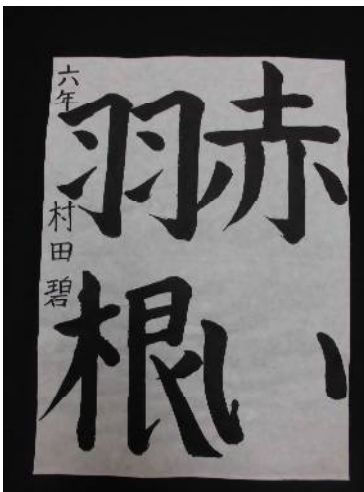 赤い
羽根
六年 村田碧